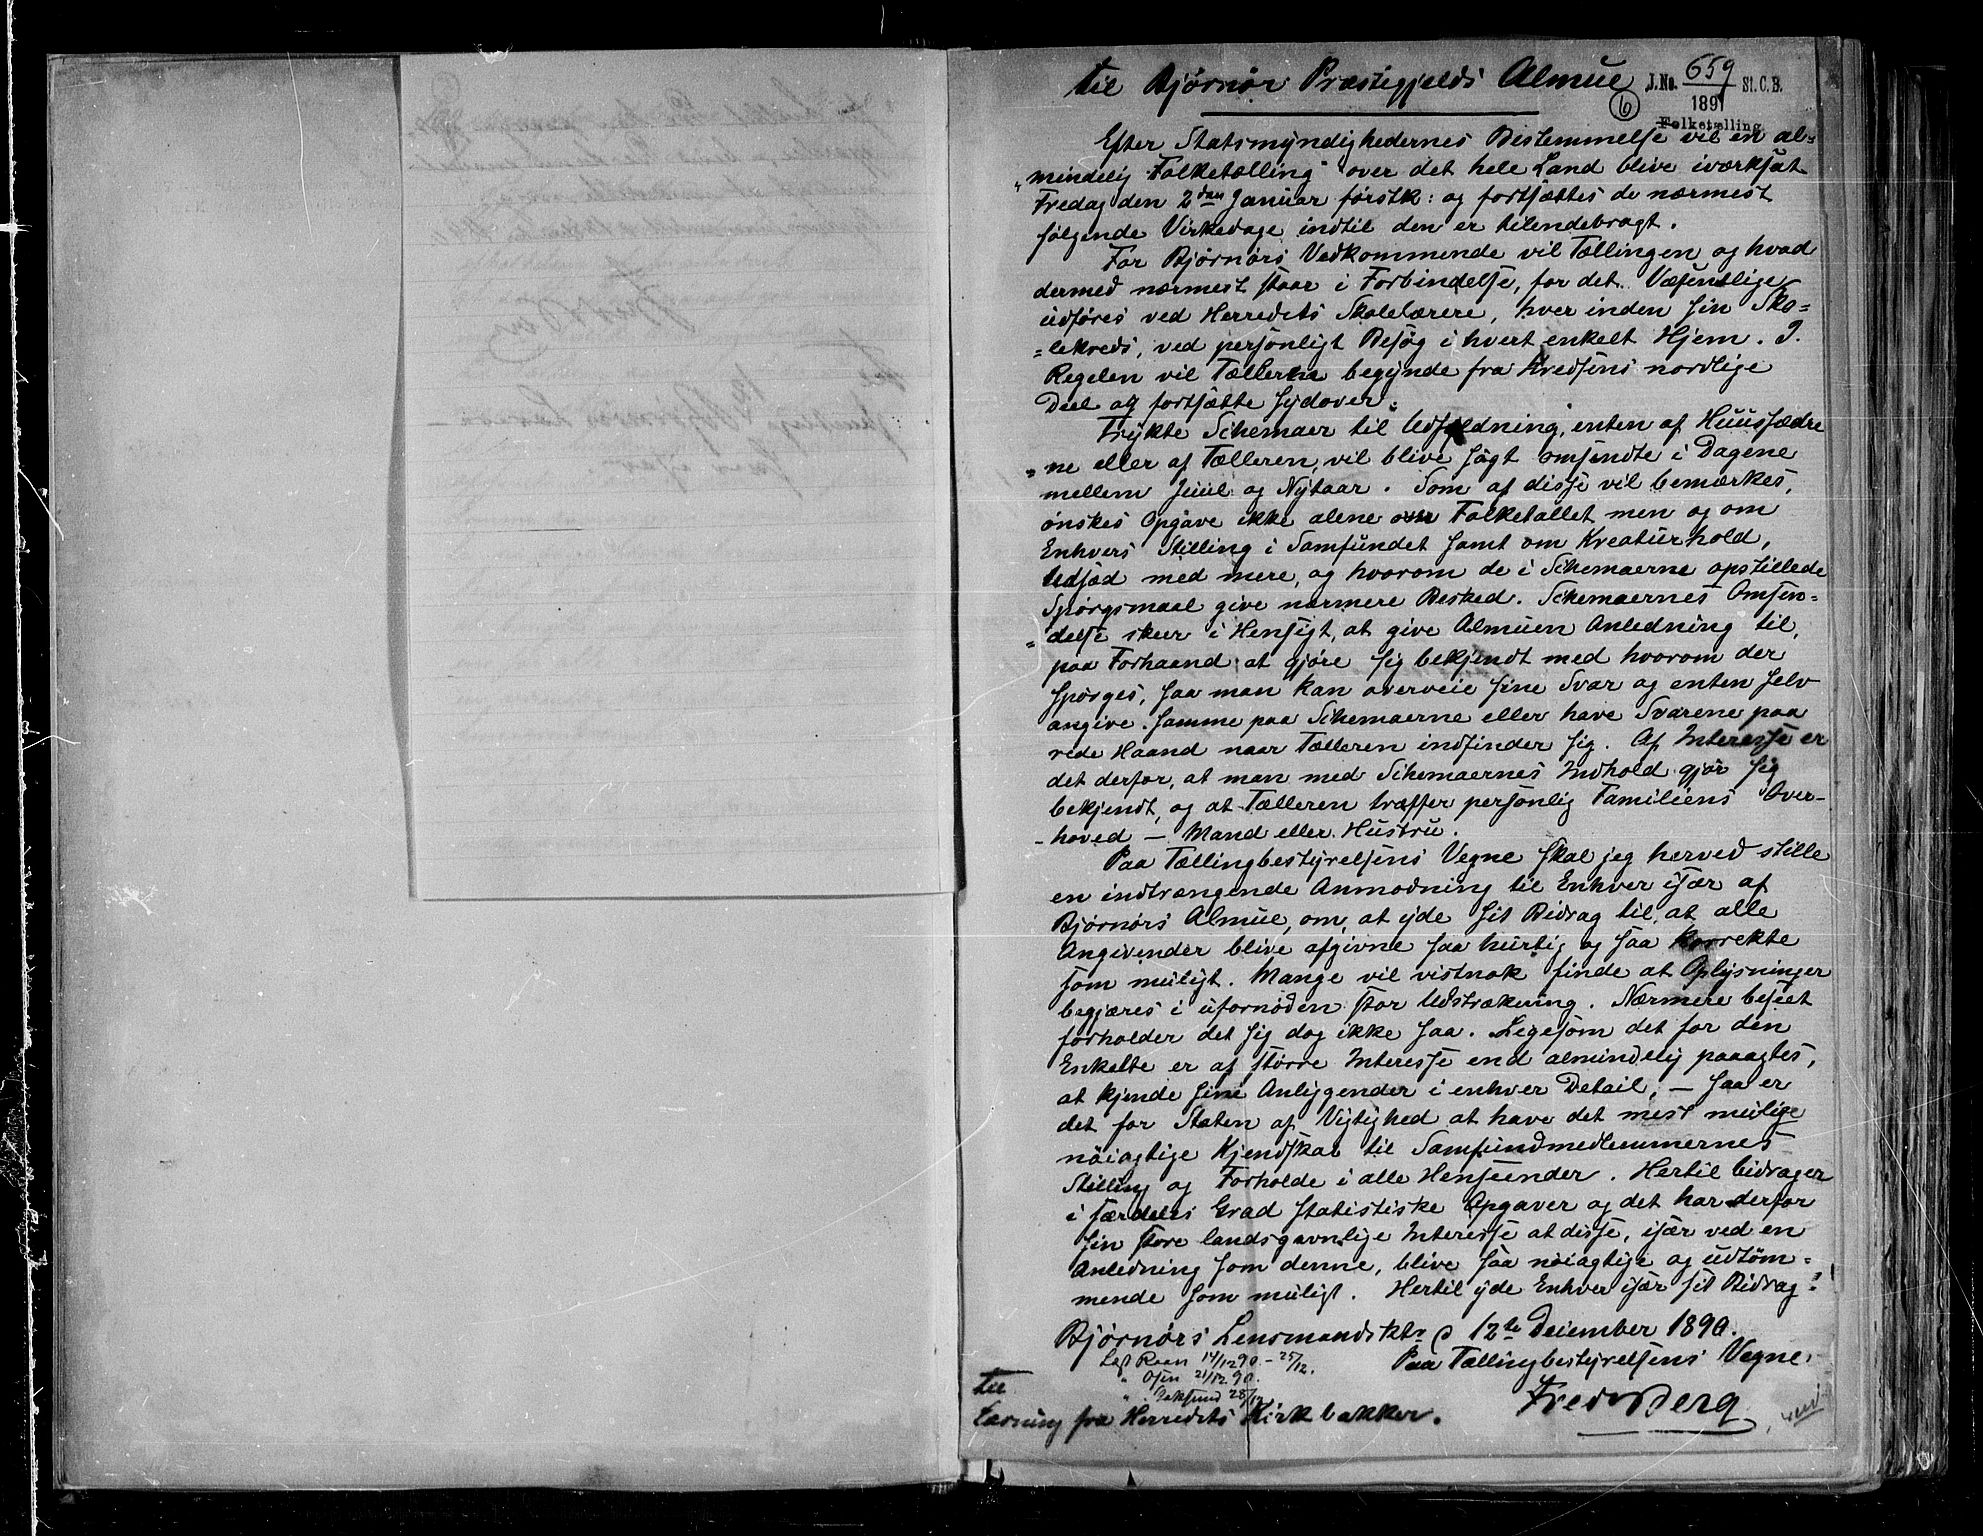 Til Bjørnør Præstegjelds Almue
J. No. 659 St. C. B.
1891
6
Folketælling
Efter Statsmyndighedernes Bestemmelse vil en al=
"mindelig Folketælling" over det hele Land blive iværksat
Fredag den 2den Januar førstk: og fortsættes de nærmest
følgende Virkedage indtil den er tilendebragt.
For Bjørnørs Vedkommende vil Tællingen og hvad
dermed nærmest staar i Forbindelse, for det Væsentlige
udføres ved Herredets Skolelærere, hver inden sin Sko=
=lekreds, ved personligt Besøg i hvert enkelt Hjem. I
Regelen vil Tællerne begynde fra Kredsens nordlige
Deel og fortsætte sydover.
Trykte Schemaer til Udfyldning, enten af Huusfædre
=ne eller af Tælleren, vil blive søgt omsendte i Dagene
mellem Juul og Nytaar. Som af disse vil bemærkes,
ønskes Opgave ikke alene over Folketallet men og om
Enhvers Stilling i Samfundet samt om Kreaturhold,
Udsæd med mere, og hvorom de i Schemaerne opstillede
Spørgsmaal give nærmere Besked. Schemaernes Omsen=
=delse skeer i Hensigt, at give Almuen Anledning til,
paa Forhaand at gjøre sig bekjendt med hvorom der
spørges, saa man kan overveie sine Svar og enten selv
angive samme paa Schemaerne eller have Svarene paa
rede Haand naar Tælleren indfinder sig. Af Interesse er
det derfor, at man med Schemaernes Indhold gjør sig
bekjendt, og at Tælleren træffer personlig Familiens Over-
-hoved — Mand eller Hustru.
Paa Tællingbestyrelsens Vegne skal jeg herved stille
en indtrængende Anmodning til Enhver især af
Bjørnørs Almue, om, at yde sit Bidrag til, at alle
Angivender blive afgivne saa hurtig og saa korrekte
som muligt. Mange vil vistnok finde at Oplysninger
begjæres i ufornøden stor Udstrækning. Nærmere beseet
forholder det sig dog ikke saa. Legesom det for den
Enkelte er af større Interesse end almindelig paaagtes,
at kjende sine Anliggender i enhver Detail; — saa er
det for Staten af Vigtighed at have det mest mulige
nøiagtige Kjendskab til Samfundmedlemmernes
Stilling og Forholde i alle Henseender. Hertil bidrager
i særdeles Grad statistiske Opgaver og det har derfor
sin store landsgavnlige Interesse at disse, især ved en
Anledning som denne, blive saa nøiagtige og udtøm=
mende som muligt. Hertil yde Enhver især sit Bidrag!
Bjørnørs Lensmandsktr 12te December 1890.
Læst Roan 14/12 90 - 25/12. Paa Tællingbestyrelsens Vegne
" Osen 21/12 90.
Til " 28/12
Læsning fra Herredets Kirkbakker. Fredr Berg